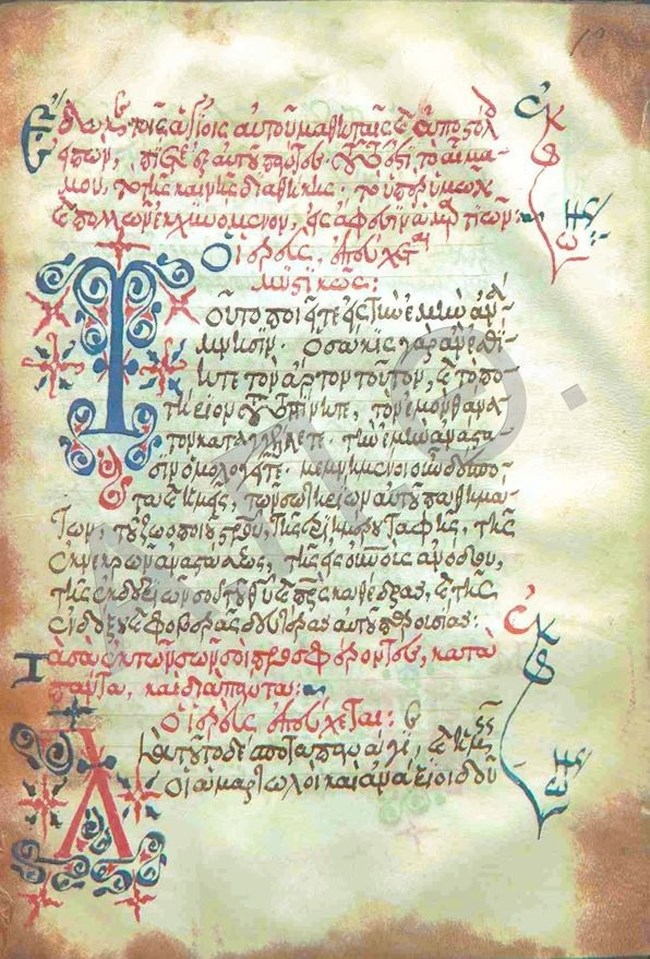 Ἔδωκε τοῖς ἁγίοις αὐτοῦ μαθηταῖς καὶ ἀποστόλ
εἰπών, πίετε ἐξ αὐτοῦ πάντες· τοῦτό ἐστι τὸ αἷμα
μου, τὸ τῆς καινῆς διαθήκης· τὸ ὑπὲρ ὑμῶν
καὶ πολλῶν ἐκχυνόμενον, εἰς ἄφεσιν ἁμαρτιῶν:
Ὁ ἱερεὺς ἐπεύχεται
μυστικῶς:
Τοῦτο ποιεῖτε εἰς τὴν ἐμὴν ἀνά-
μνησιν· Ὁσάκις γὰρ ἂν ἐσθί-
ητε τὸν ἄρτον τοῦτον, καὶ τὸ πο-
τήριον τοῦτο πίνητε, τὸν ἐμὸν θάνα-
τον καταγγέλλετε· τὴν ἐμὴν ἀνάστα-
σιν ὁμολογεῖτε· μεμνημένοι οὖν δέσπο-
τα καὶ ἡμεῖς, τῶν σωτηρίων αὐτοῦ παθημά-
των, τοῦ ζωοποιοῦ σταυροῦ, τῆς τριημέρου ταφῆς, τῆς
ἐκ νεκρῶν ἀναστάσεως, τῆς εἰς οὐρανοὺς ἀνόδου,
τῆς ἐκ δεξιῶν σοῦ τοῦ θεοῦ καὶ πατρὸς καθέδρας, καὶ τῆς
ἐνδόξου καὶ φοβερᾶς δευτέρας αὐτοῦ παρουσίας:
Τὰ σὰ ἐκ τῶν σῶν σοὶ προσφέροντες, κατὰ
πάντα, καὶ διὰ πάντα:
Ὁ ἱερεὺς ἐπεύχεται:
Διὰ τοῦτο δέσποτα πανάγιε, καὶ ἡμεῖς
οἱ ἁμαρτωλοὶ καὶ ἀνάξιοι δοῦ